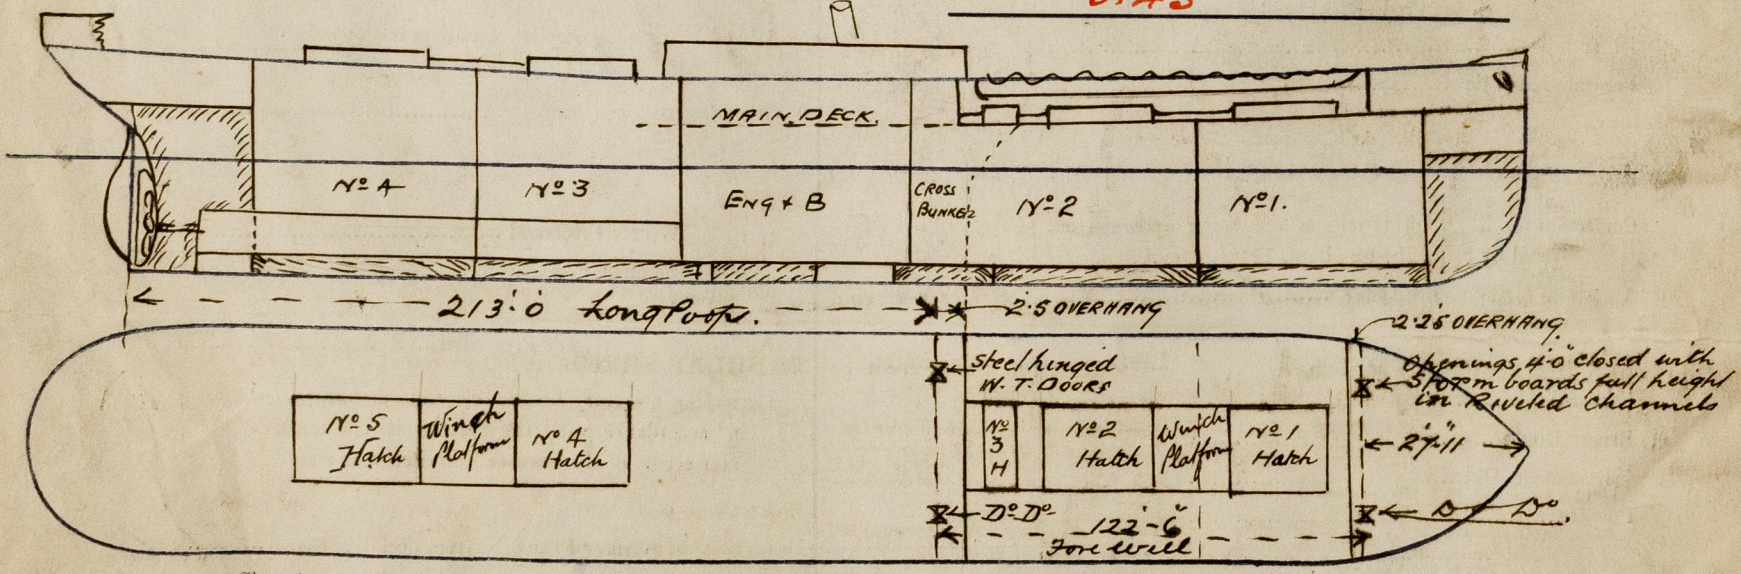 MAIN. DECK.
Nº 4
Nº 3
ENG & B
CROSS
BUNKER
Nº 2
Nº 1.
213'.0 Long Poop.
2.5 OVERHANG
2.25 OVERHANG
Steel hinged
W.T. DOORS
Openings, 4'-0" closed with
Storm boards full height
in Riveted Channels
Nº 5
Hatch
Winch
Platform
Nº 4
Hatch
Nº
3
H
Nº 2
Hatch
Winch
Platform
Nº 1
Hatch
27'-11
Dº Dº
D Dº.
122'-6"
Fore Well